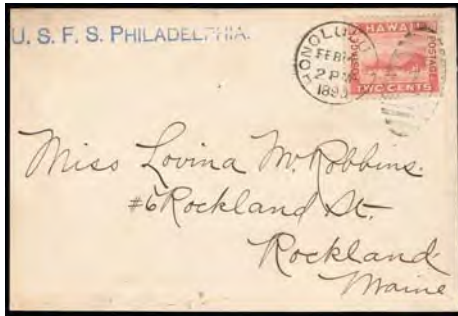 U. S. F. S. PHILADELPHIA.
HONOLULU
FEB
2 PM
HAWAII
POSTAGE
POSTAGE
TWO CENTS
Miss Lovina M. Robbins.
#6 Rockland St.
Rockland
Maine